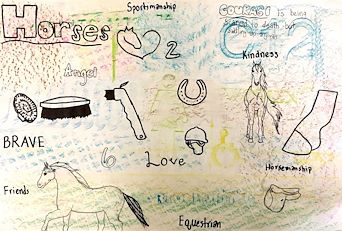 Horses
Sportsmanship
COURAGE is being
scared to death but
saddling up anyway
2
Kindness
Angel
BRAVE
6
Love
Horsemanship
Friends
Equestrian